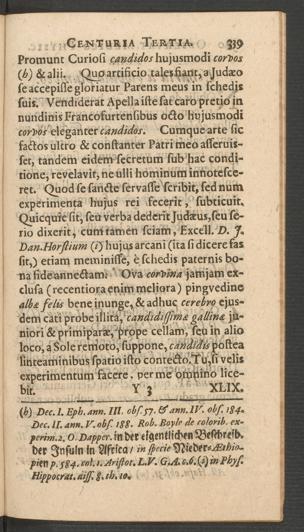 CENTURIA TERTIA. 339
Promunt Curiosi candidos hujusmodi corvos
(h) & alii. Quo artificio tales fiant, a Judæo
se accepisse gloriatur Parens meus in schedis
suis. Vendiderat Apella iste sat caro pretio in
nundinis Francofurtensibus octo hujusmodi
corvos eleganter candidos. Cumque arte sic
factos ultro & constanter Patri meo asseruis-
set, tandem eidem secretum sub hac condi-
tione, revelavit, ne ulli hominum innotesce-
ret. Quod se sancte servasse scribit, sed num
experimenta hujus rei fecerit, subticuit.
Quicquid sit, seu verba dederit Judæus, seu se-
rio dixerit, cum tamen sciam, Excell. D. J.
Dan. Horstium (i) hujus arcani (ita si dicere fas
sit,) etiam meminisse, è schedis paternis bo-
na fide annectam. Ova corvina jamjam ex-
clusa (recentiora enim meliora) pingvedine
albæ felis bene inunge, & adhuc cerebro ejus-
dem cati probe illita, candidissimæ gallinæ ju-
niori & primiparæ, prope cellam, seu in alio
loco, a Sole remoto, suppone, candidis postea
linteaminibus spatio isto contecto. Tu, si velis
experimentum facere, per me omnino lice-
bit. Y 3 XLIX.
(h) Dec. I. Eph. ann. III. obs. 57. & ann. IV. obs. 184.
Dec. II. ann. V. obs. 188. Rob. Boyle de colorib. ex-
perim. 2. O. Dapper. in der eigentlichen Beschreib.
der Insuln in Africa; in specie Nieder-Æthio-
pien p. 584. col. 1. Aristot. L. V. G. A. c. 6. (i) in Phys.
Hippocrat. aiss. 8. th. 10.